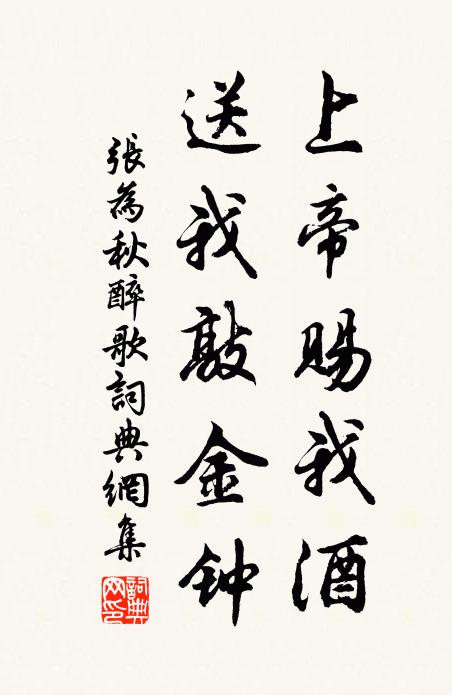 上帝賜我酒
送我敲金钟
張為秋醉歌詞典網集
詞典网印